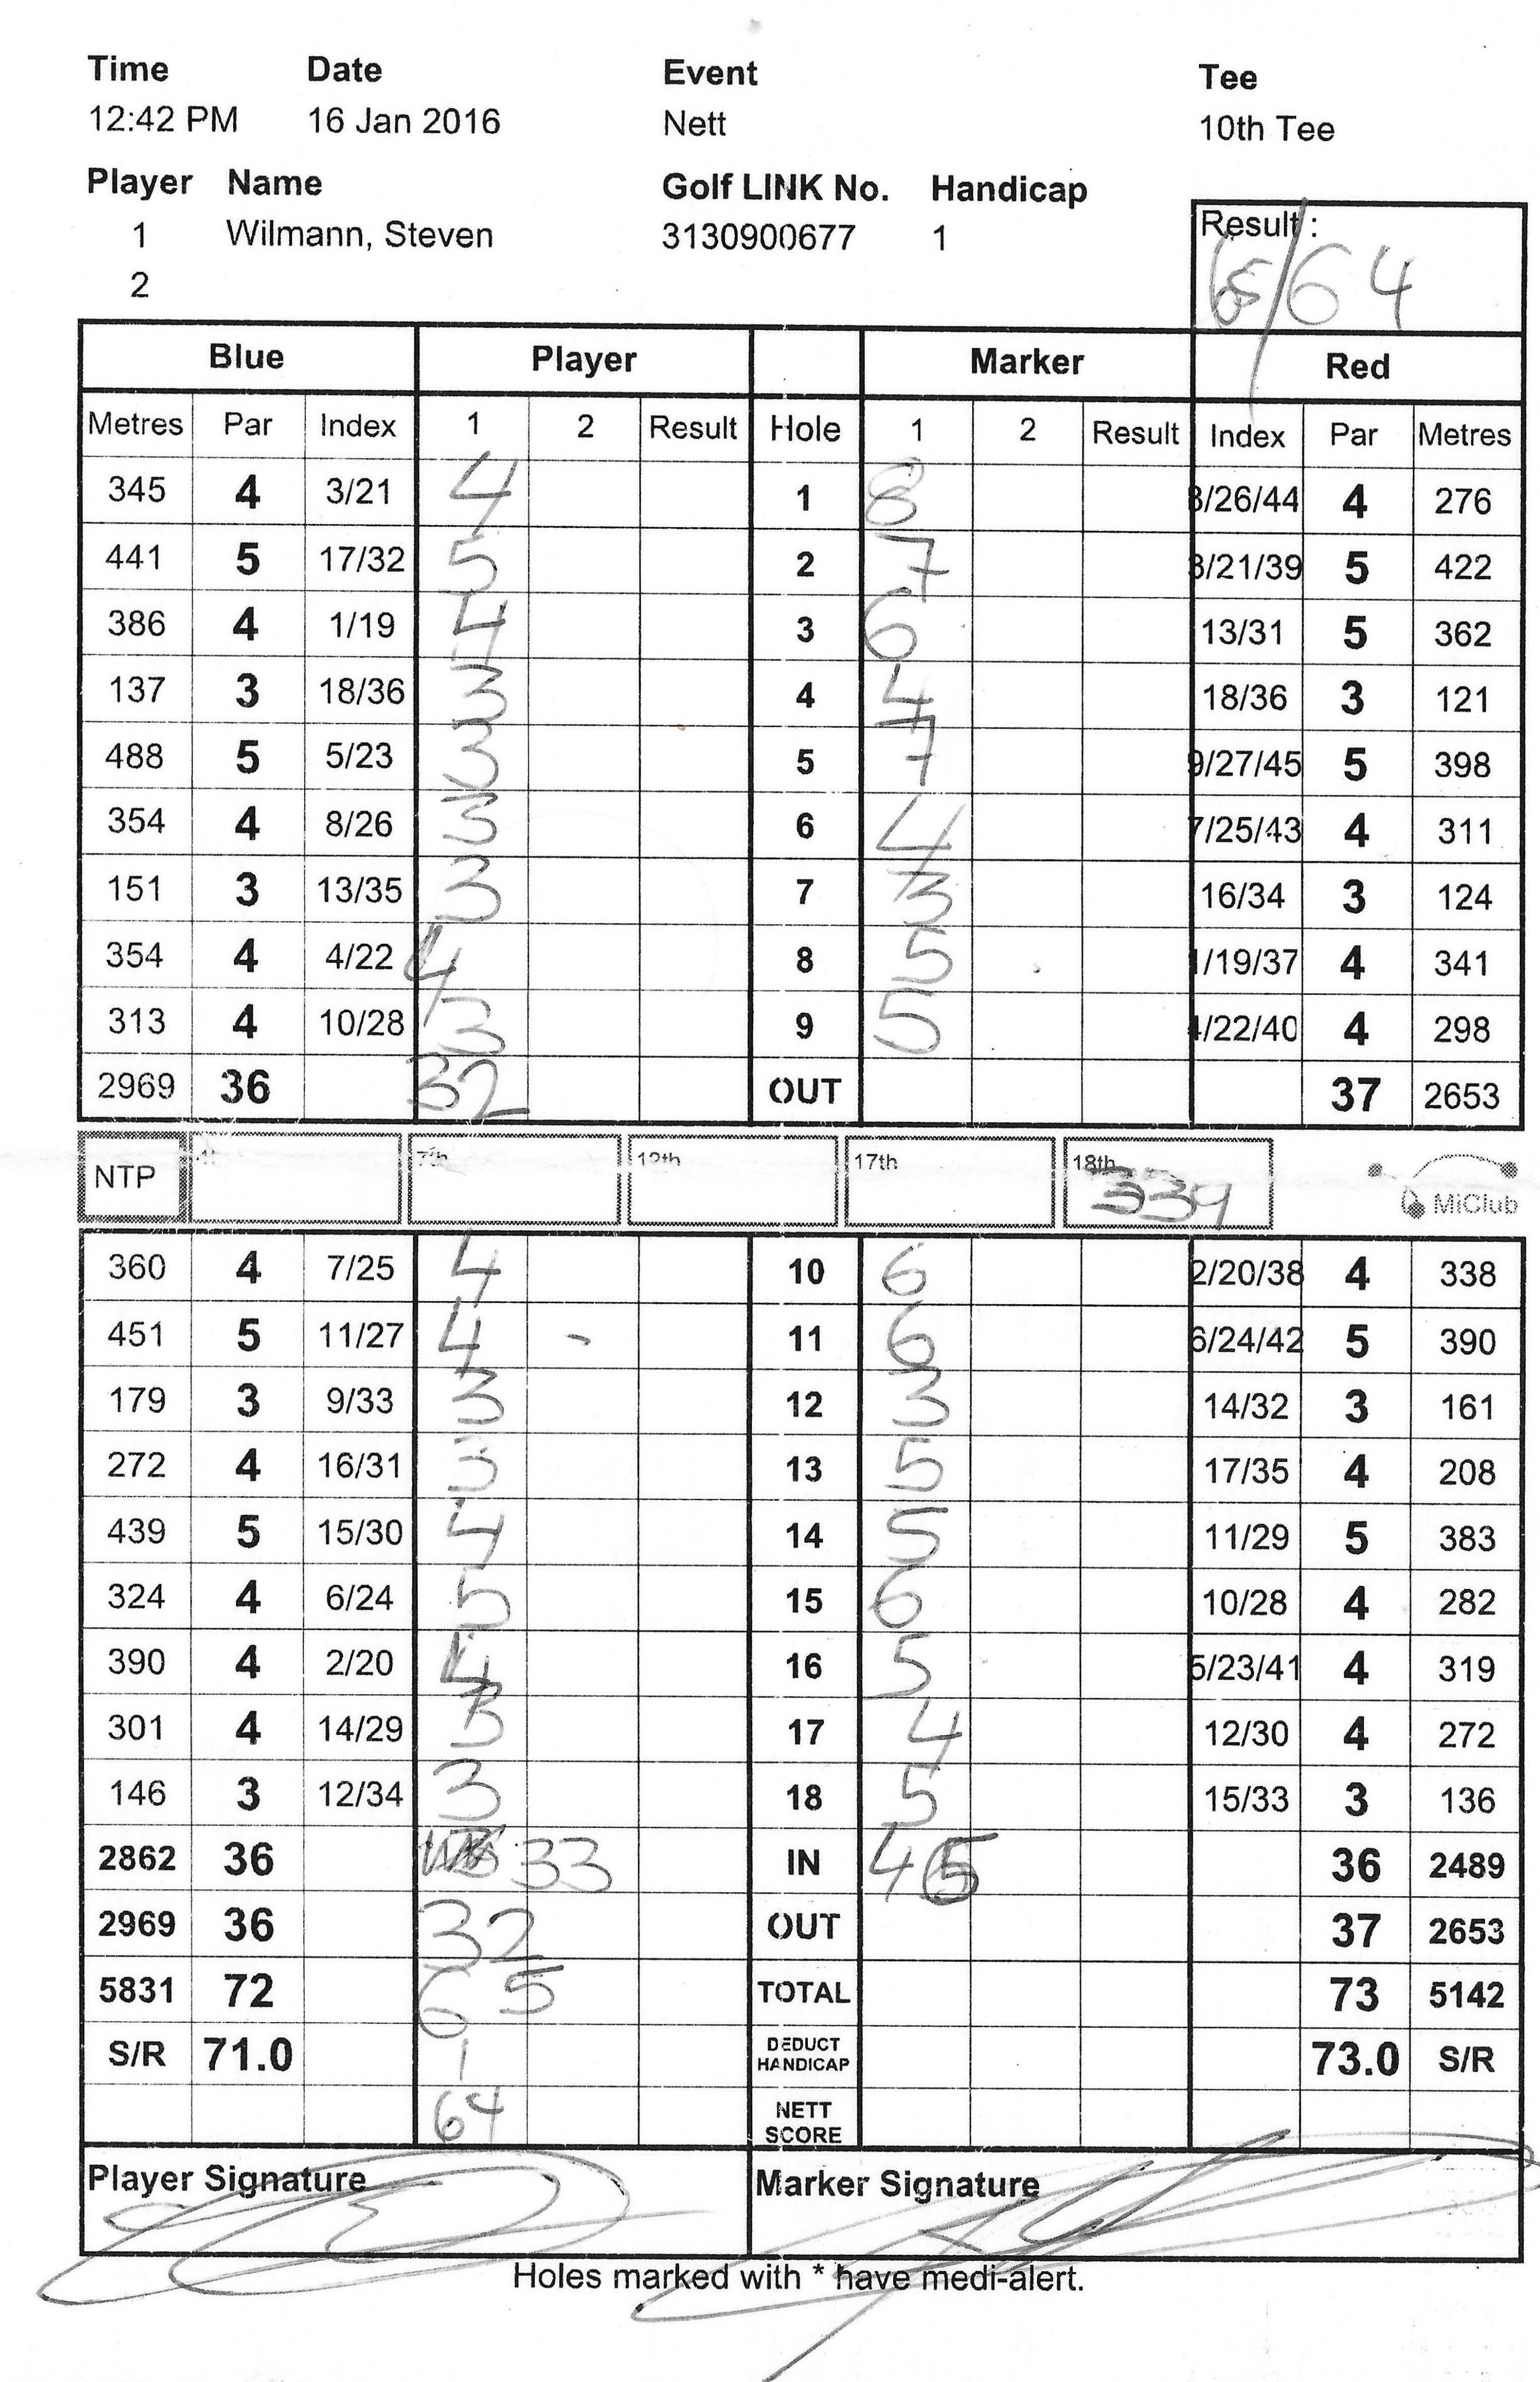 Time Date Event Tee
12:42 PM 16 Jan 2016 Nett 10th Tee
Player Name Golf LINK No. Handicap
1 Wilmann, Steven 3130900677 1
2
Result :
65/64
Blue Player Marker Red
Metres Par Index 1 2 Result Hole 1 2 Result Index Par Metres
345 4 3/21 4 1 8 8/26/44 4 276
441 5 17/32 5 2 7 3/21/39 5 422
386 4 1/19 4 3 6 13/31 5 362
137 3 18/36 3 4 4 18/36 3 121
488 5 5/23 3 5 7 9/27/45 5 398
354 4 8/26 3 6 4 7/25/43 4 311
151 3 13/35 3 7 3 16/34 3 124
354 4 4/22 4 8 5 1/19/37 4 341
313 4 10/28 3 9 5 4/22/40 4 298
2969 36 32 OUT 37 2653
NTP 7th 12th 17th 18th 339 MiClub
360 4 7/25 4 10 6 2/20/38 4 338
451 5 11/27 4 11 6 6/24/42 5 390
179 3 9/33 3 12 3 14/32 3 161
272 4 16/31 3 13 5 17/35 4 208
439 5 15/30 4 14 5 11/29 5 383
324 4 6/24 5 15 6 10/28 4 282
390 4 2/20 4 16 5 5/23/41 4 319
301 4 14/29 3 17 4 12/30 4 272
146 3 12/34 3 18 5 15/33 3 136
2862 36 33 IN 45 36 2489
2969 36 32 OUT 37 2653
5831 72 65 TOTAL 73 5142
S/R 71.0 1 DEDUCT HANDICAP 73.0 S/R
64 NETT SCORE
Player Signature Marker Signature
Holes marked with * have medi-alert.